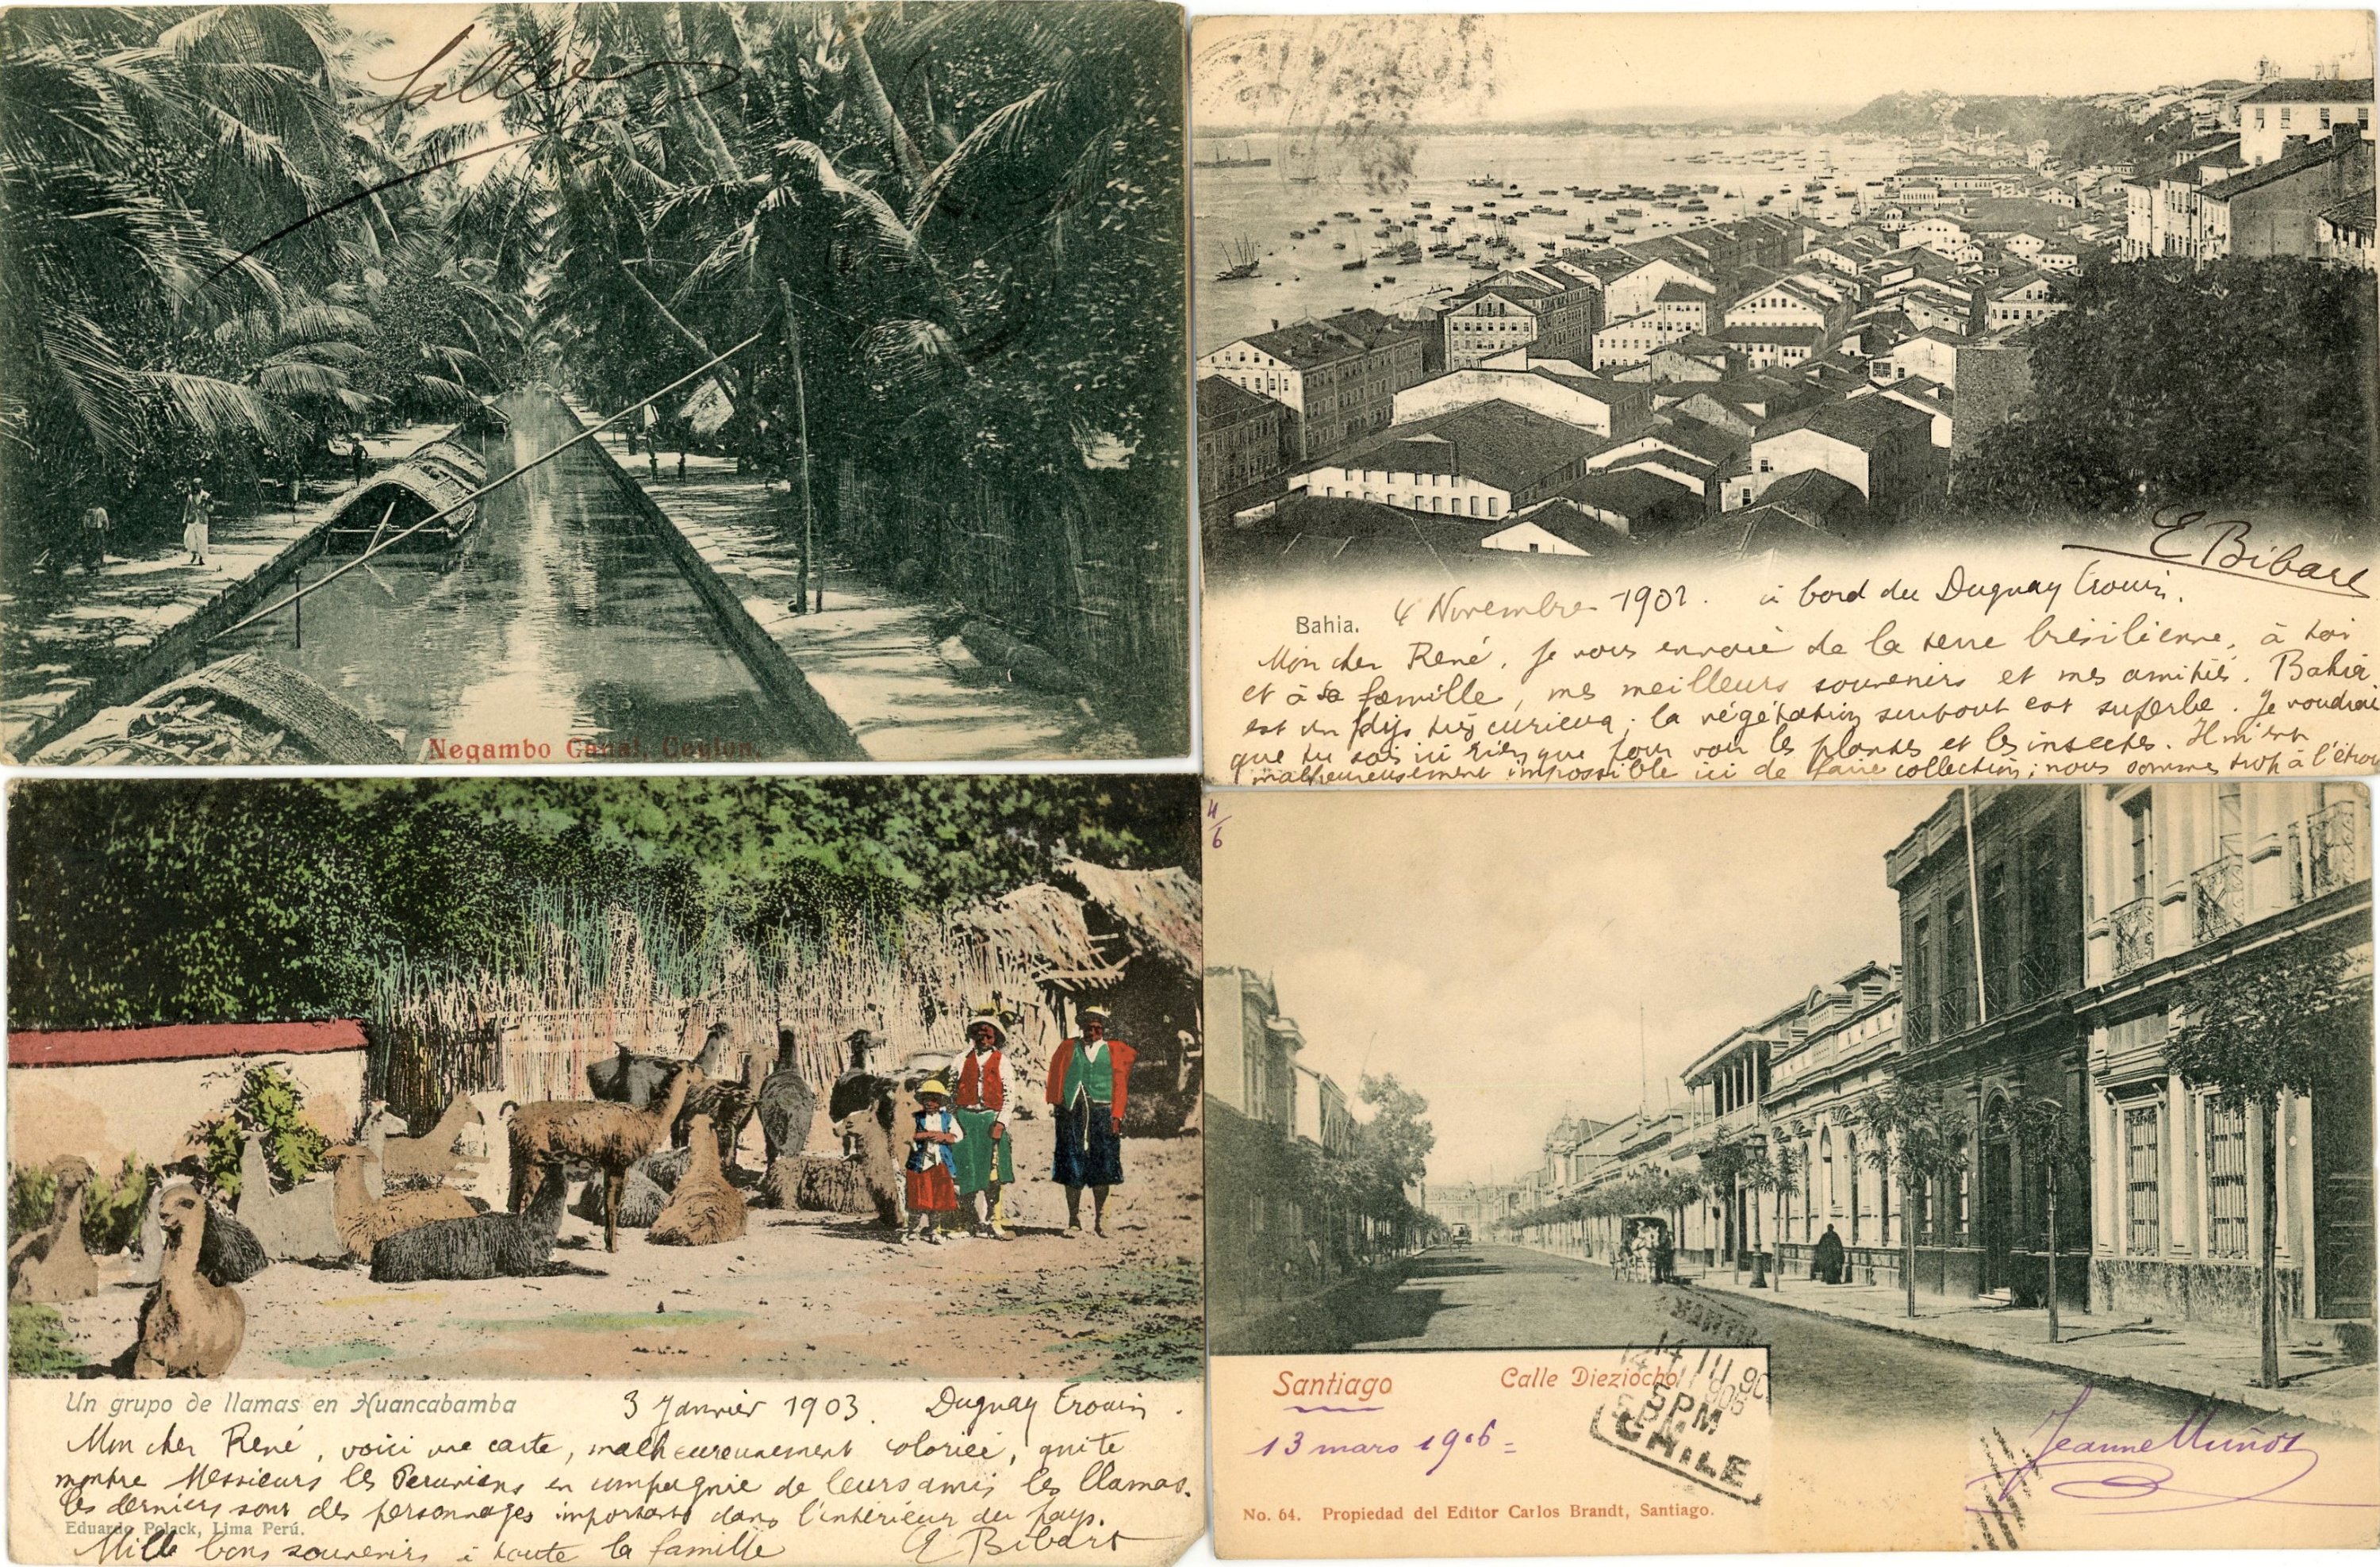 Negambo Canal, Ceylon.
E Bibart
Bahia.
4 Novembre 1902. à bord du Duguay Trouin.
Mon cher René, je vous envoie de la terre brésilienne, à toi
et à ta famille, mes meilleurs souvenirs et mes amitiés. Bahia
est un pays très curieux; la végétation surtout est superbe. Je voudrais
que tu sois ici rien que pour voir les plantes et les insectes. Il m'est
malheureusement impossible ici de faire collection; nous sommes trop à l'étroit
Un grupo de llamas en Huancabamba
3 Janvier 1903. Duguay Trouin.
Mon cher René, voici une carte, malheureusement coloriée, qui te
montre Messieurs les Peruviens en compagnie de leurs amis les llamas.
Ces derniers sont des personnages importants dans l'intérieur du pays.
Eduardo Polack, Lima Perú.
Mille bons souvenirs à toute la famille E Bibart
4/6
Santiago Calle Dieziocho
14 III 90
5 PM
CHILE
13 mars 1906=
Jeanne Muñoz
No. 64. Propiedad del Editor Carlos Brandt, Santiago.